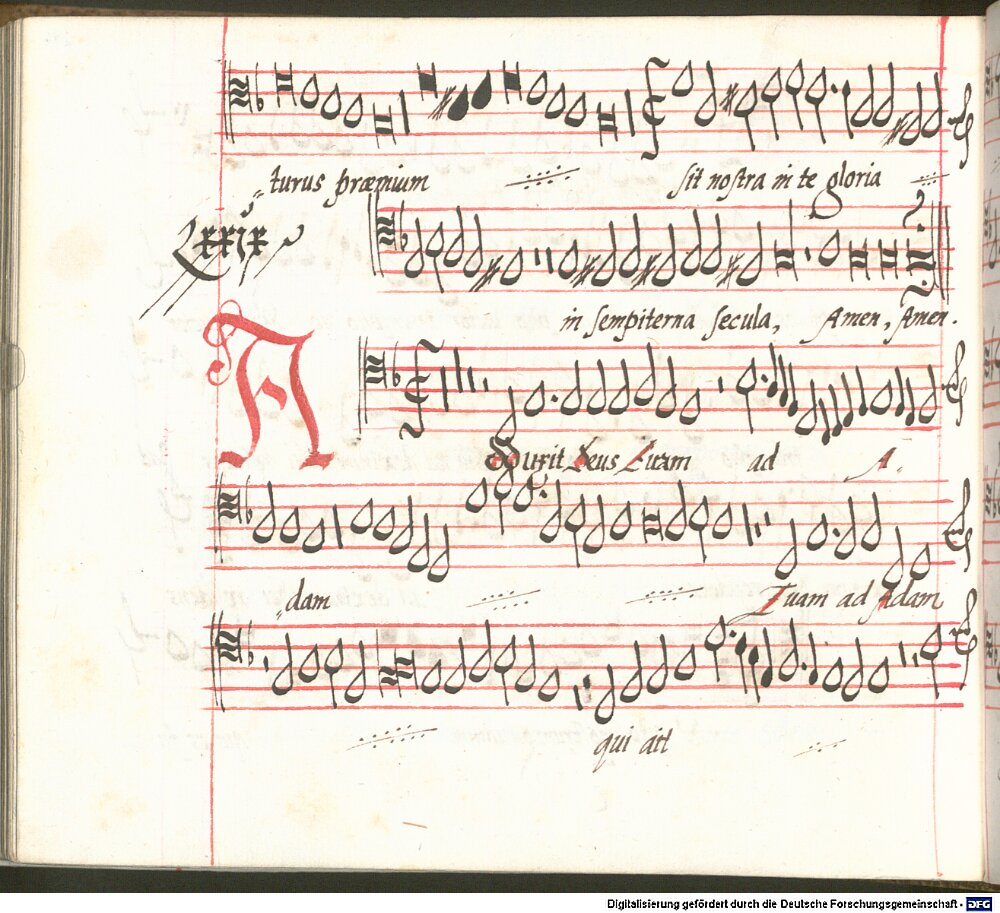 turus præmium sit nostra in te gloria
Lxxix
in sempiterna secula, Amen, Amen.
Adduxit Deus Euam ad A-
dam Euam ad Adam
qui ait
Digitalisierung gefördert durch die Deutsche Forschungsgemeinschaft - DFG